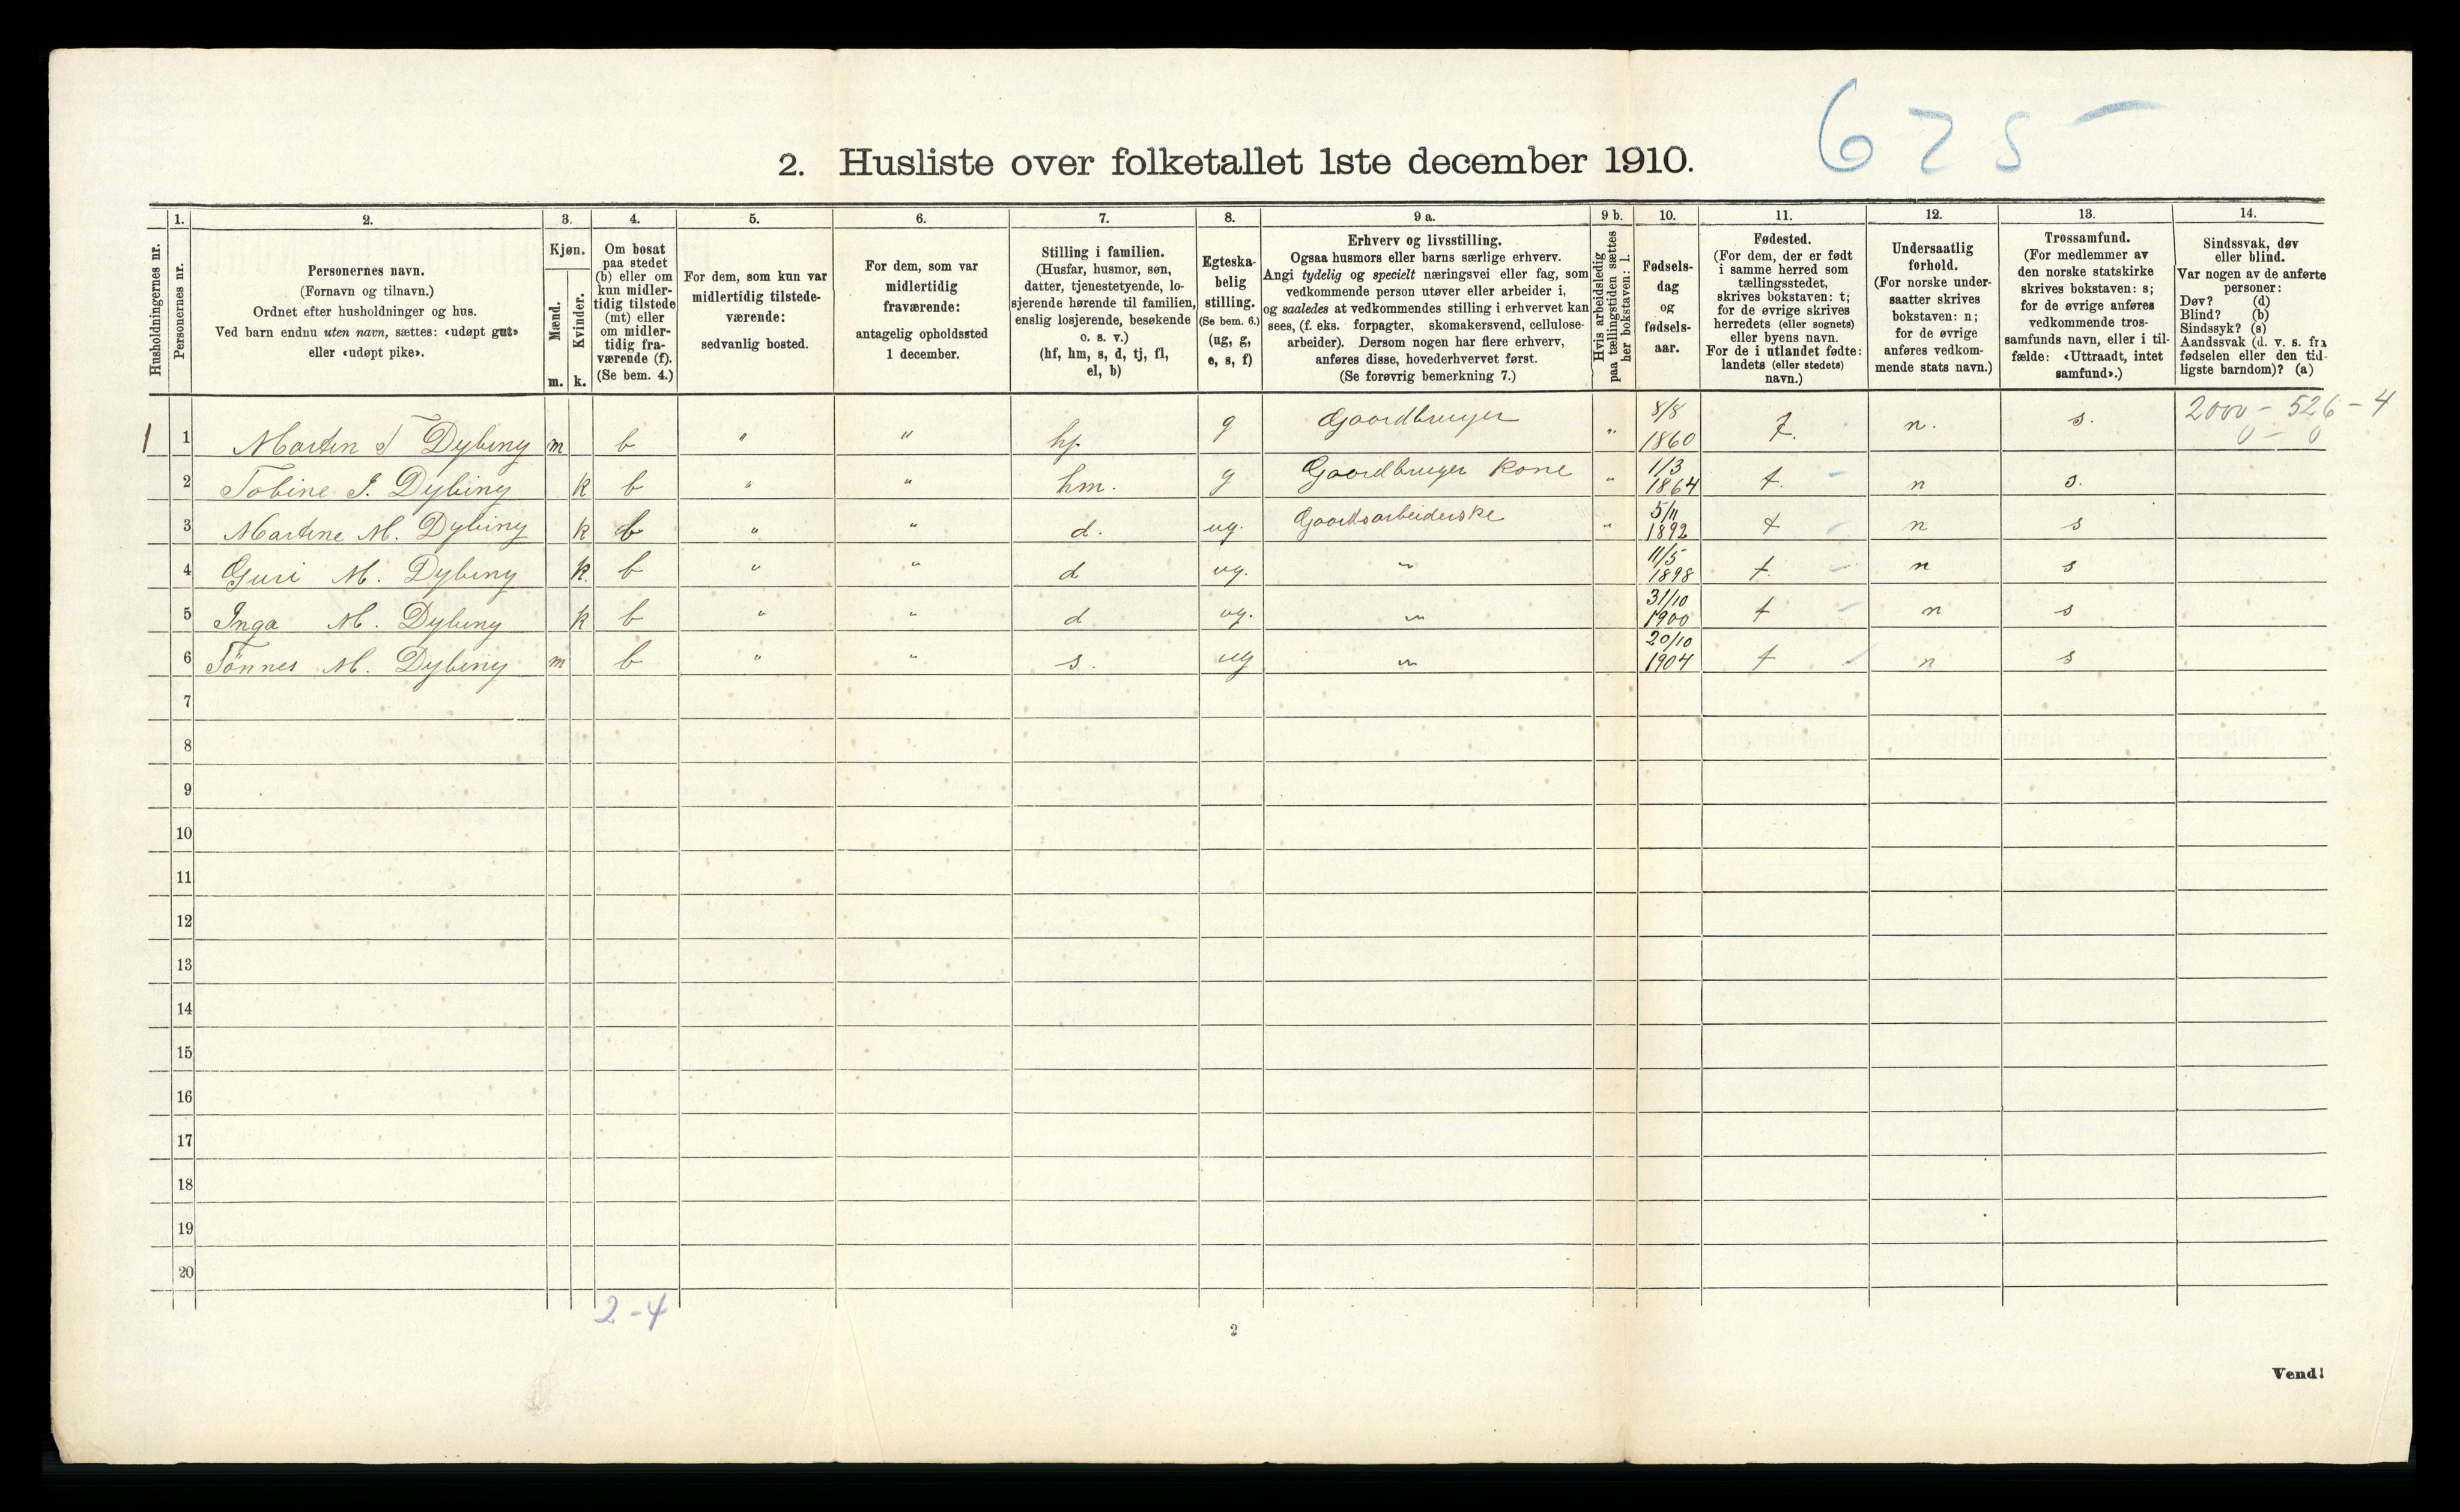 625 –
2. Husliste over folketallet 1ste december 1910.
Husholdningernes nr.
1. Personernes nr.
2. Personernes navn.
(Fornavn og tilnavn.)
Ordnet efter husholdninger og hus.
Ved barn endnu uten navn, sættes: «udøpt gut»
eller «udøpt pike».
3. Kjøn.
Mænd. m.
Kvinder. k.
4. Om bosat
paa stedet
(b) eller om
kun midler-
tidig tilstede
(mt) eller
om midler-
tidig fra-
værende (f).
(Se bem. 4.)
5. For dem, som kun var
midlertidig tilstede-
værende:
sedvanlig bosted.
6. For dem, som var
midlertidig
fraværende:
antagelig opholdssted
1 december.
7. Stilling i familien.
(Husfar, husmor, søn,
datter, tjenestetyende, lo-
sjerende hørende til familien,
enslig losjerende, besøkende
o. s. v.)
(hf, hm, s, d, tj, fl,
el, b)
8. Egteska-
belig
stilling.
(Se bem. 6.)
(ug, g,
e, s, f)
9 a. Erhverv og livsstilling.
Ogsaa husmors eller barns særlige erhverv.
Angi tydelig og specielt næringsvei eller fag, som
vedkommende person utøver eller arbeider i,
og saaledes at vedkommendes stilling i erhvervet kan
sees, (f. eks. forpagter, skomakersvend, cellulose-
arbeider). Dersom nogen har flere erhverv,
anføres disse, hovederhvervet først.
(Se forøvrig bemerkning 7.)
9 b. Hvis arbeidsledig
paa tællingstiden sættes
her bokstaven: l.
10. Fødsels-
dag
og
fødsels-
aar.
11. Fødested.
(For dem, der er født
i samme herred som
tællingsstedet,
skrives bokstaven: t;
for de øvrige skrives
herredets (eller sognets)
eller byens navn.
For de i utlandet fødte:
landets (eller stedets)
navn.)
12. Undersaatlig
forhold.
(For norske under-
saatter skrives
bokstaven: n;
for de øvrige
anføres vedkom-
mende stats navn.)
13. Trossamfund.
(For medlemmer av
den norske statskirke
skrives bokstaven: s;
for de øvrige anføres
vedkommende tros-
samfunds navn, eller i til-
fælde: «Uttraadt, intet
samfund».)
14. Sindssvak, døv
eller blind.
Var nogen av de anførte
personer:
Døv? (d)
Blind? (b)
Sindssyk? (s)
Aandssvak (d. v. s. fra
fødselen eller den tid-
ligste barndom)? (a)
2000 – 526 – 4
0 – 0
1 1 Marten T Dybing m b " " hf. g Gaardbruger " 8/8 1860 t. n. s.
2 Tobine J. Dybing k b " " hm. g Gaardbruger kone " 1/3 1864 t. n s.
3 Martine M. Dybing k b " " d. ug. Gaardsarbeiderske " 5/11 1892 t n s
4 Guri M. Dybing k. b " " d ug. " 11/5 1898 t. n s
5 Inga M. Dybing k b " " d ug. " 31/10 1900 t n s
6 Tönnes M. Dybing m b " " s. ug " 20/10 1904 t n s
7
8
9
10
11
12
13
14
15
16
17
18
19
20
2-4
2
Vend!